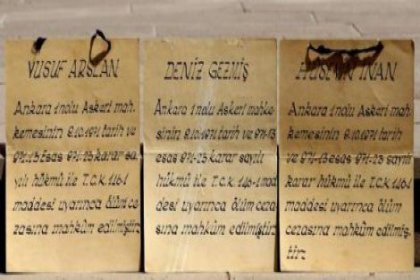 YUSUF ARSLAN
Ankara 1 nolu Askeri mah-
kemesinin 9.10.1971 tarih ve
971-13 esas 971-23 karar sa-
yılı hükmü ile T.C.K. 146-1
maddesi uyarınca ölüm ce-
zasına mahküm edilmiştir.
DENİZ GEZMİŞ
Ankara 1 nolu Askeri mahke-
sinin 9.10.1971 tarih ve 971-13
esas 971-23 karar sayılı
hükmü ile T.C.K. 146-1 mad
desi uyarınca ölüm ceza-
sına mahküm edilmiştir.
HÜSEYİN İNAN
Ankara 1 nolu Askeri mah-
kemesinin 9.10.1971 tarih
ve 971-13 esas 971-23 sayılı
karar hükmü ile T.C.K. 146-1
maddesi uyarınca ölüm
cezasına mahküm edilmiş-
tir.